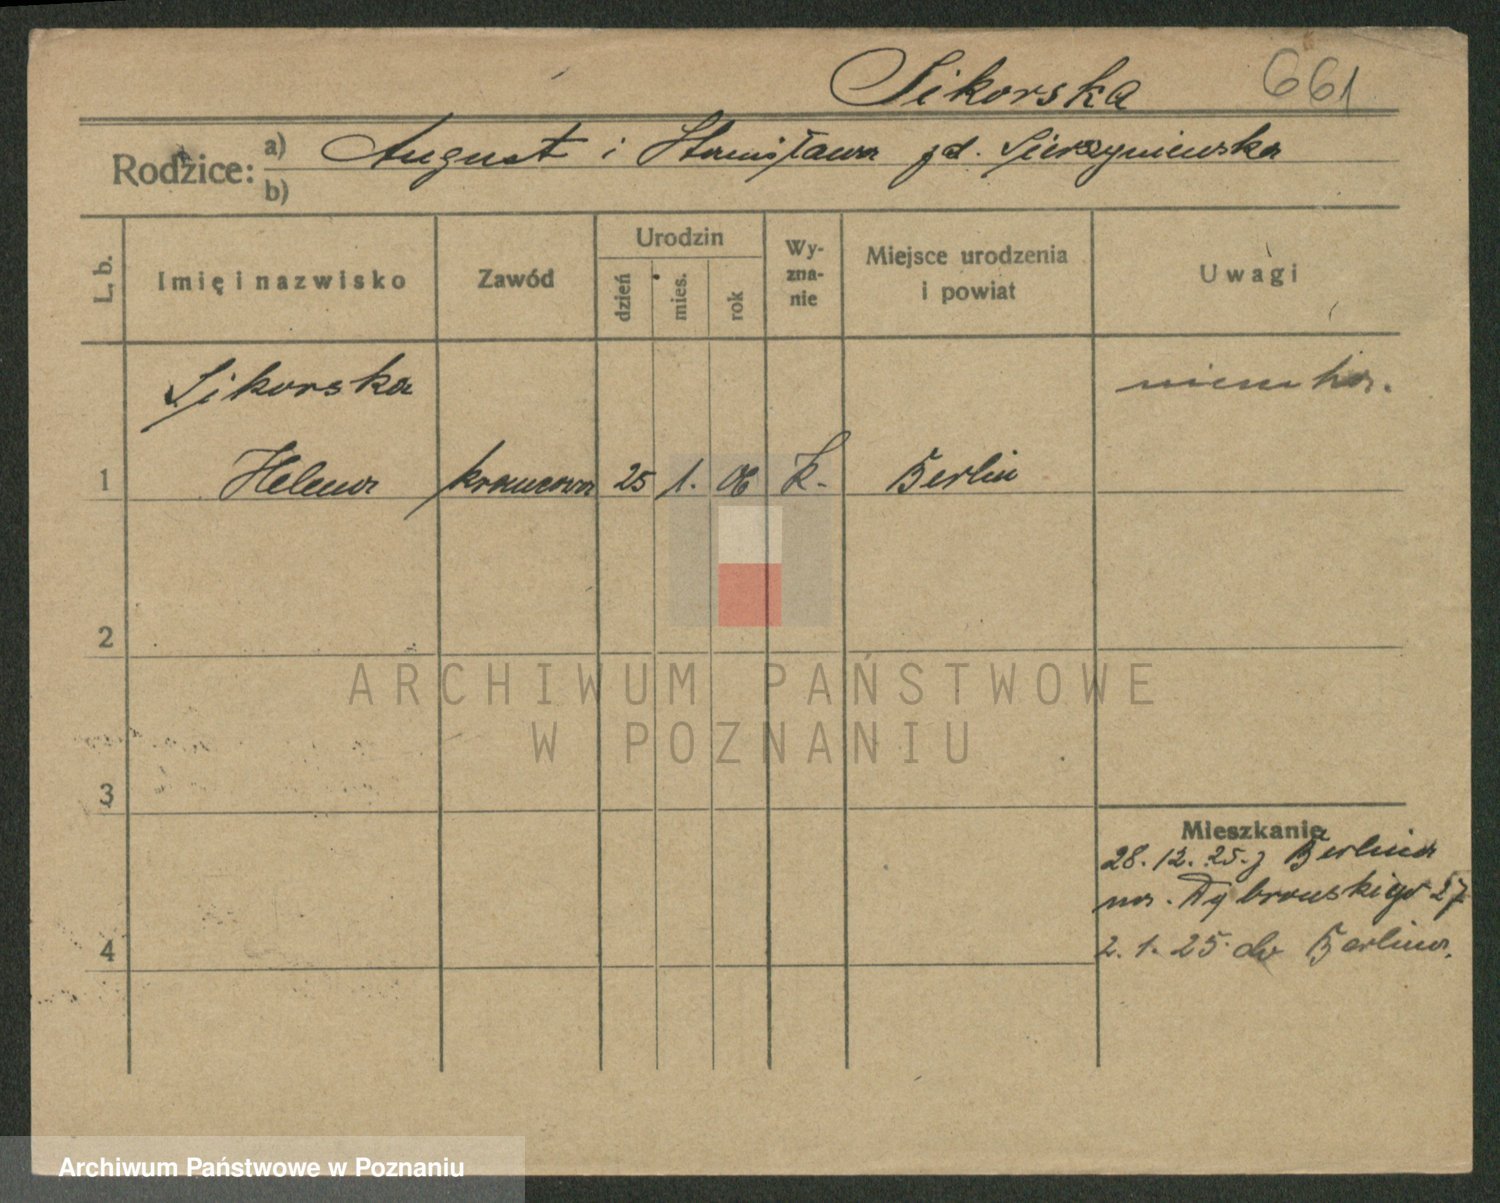 Sikorska 661
Rodzice: a) August i Stanisława zd. Sierszyniewska
b)
L. b.
Imię i nazwisko
Zawód
Urodzin
dzień
mies.
rok
Wy-
zna-
nie
Miejsce urodzenia
i powiat
Uwagi
Sikorska
1 Helena krawcowa 25 1. 06 k. Berlin
2
3
4
ARCHIWUM PAŃSTWOWE
W POZNANIU
Mieszkanie
28. 12. 25. z Berlina
na. Dąbrowskiego 27
2. 1. 25 do Berlina.
Archiwum Państwowe w Poznaniu